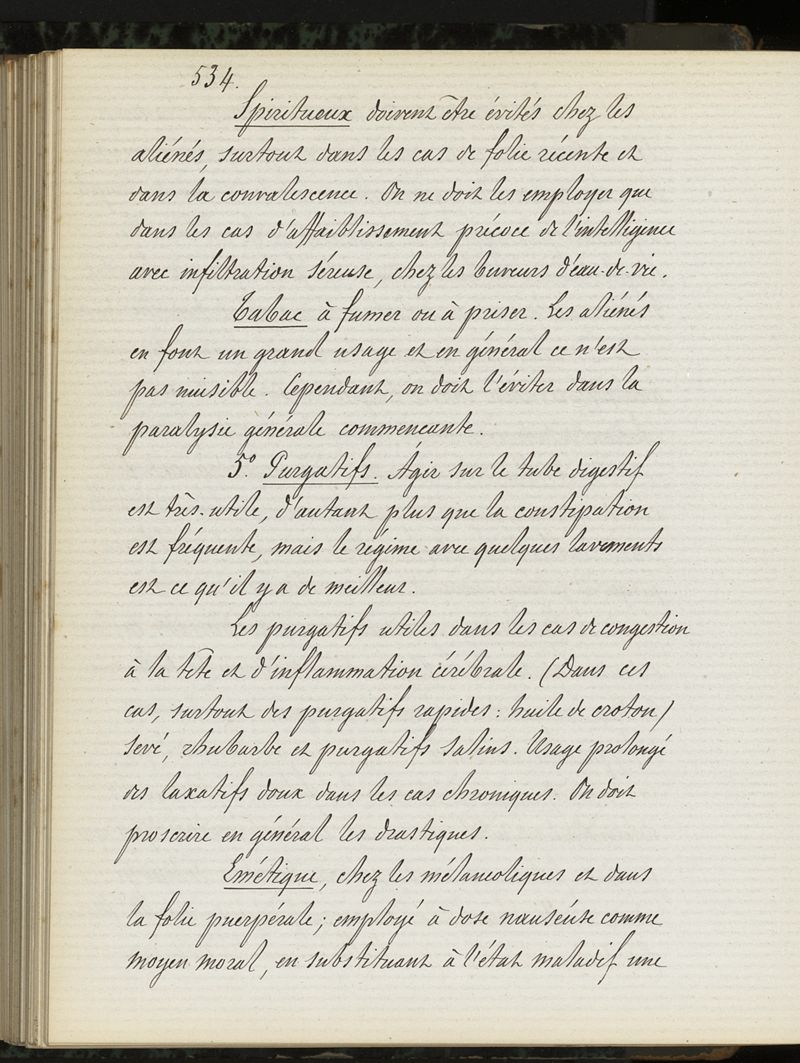 534.
Spiritueux doivent être évités chez les
aliénés, surtout dans les cas de folie récente et
dans la convalescence. On ne doit les employer que
dans les cas d'affaiblissement précoce de l'intelligence
avec infiltration séreuse, chez les buveurs d'eau-de-vie.
Tabac à fumer ou à priser. Les aliénés
en font un grand usage et en général ce n'est
pas nuisible. Cependant, on doit l'éviter dans la
paralysie générale commencante.
5° Purgatifs. Agir sur le tube digestif
est très-utile, d'autant plus que la constipation
est fréquente, mais le régime avec quelques lavements
est ce qu'il y a de meilleur.
Les purgatifs utiles dans les cas de congestion
à la tête et d'inflammation cérébrale. (Dans ces
cas, surtout des purgatifs rapides : huile de croton)
séné, rhubarbe et purgatifs salins. Usage prolongé
des laxatifs doux dans les cas chroniques. On doit
proscrire en général les drastiques.
Emétique, chez les mélancoliques et dans
la folie puerpérale; employé à dose nauséuse comme
moyen moral, en substituant à l'état maladif une